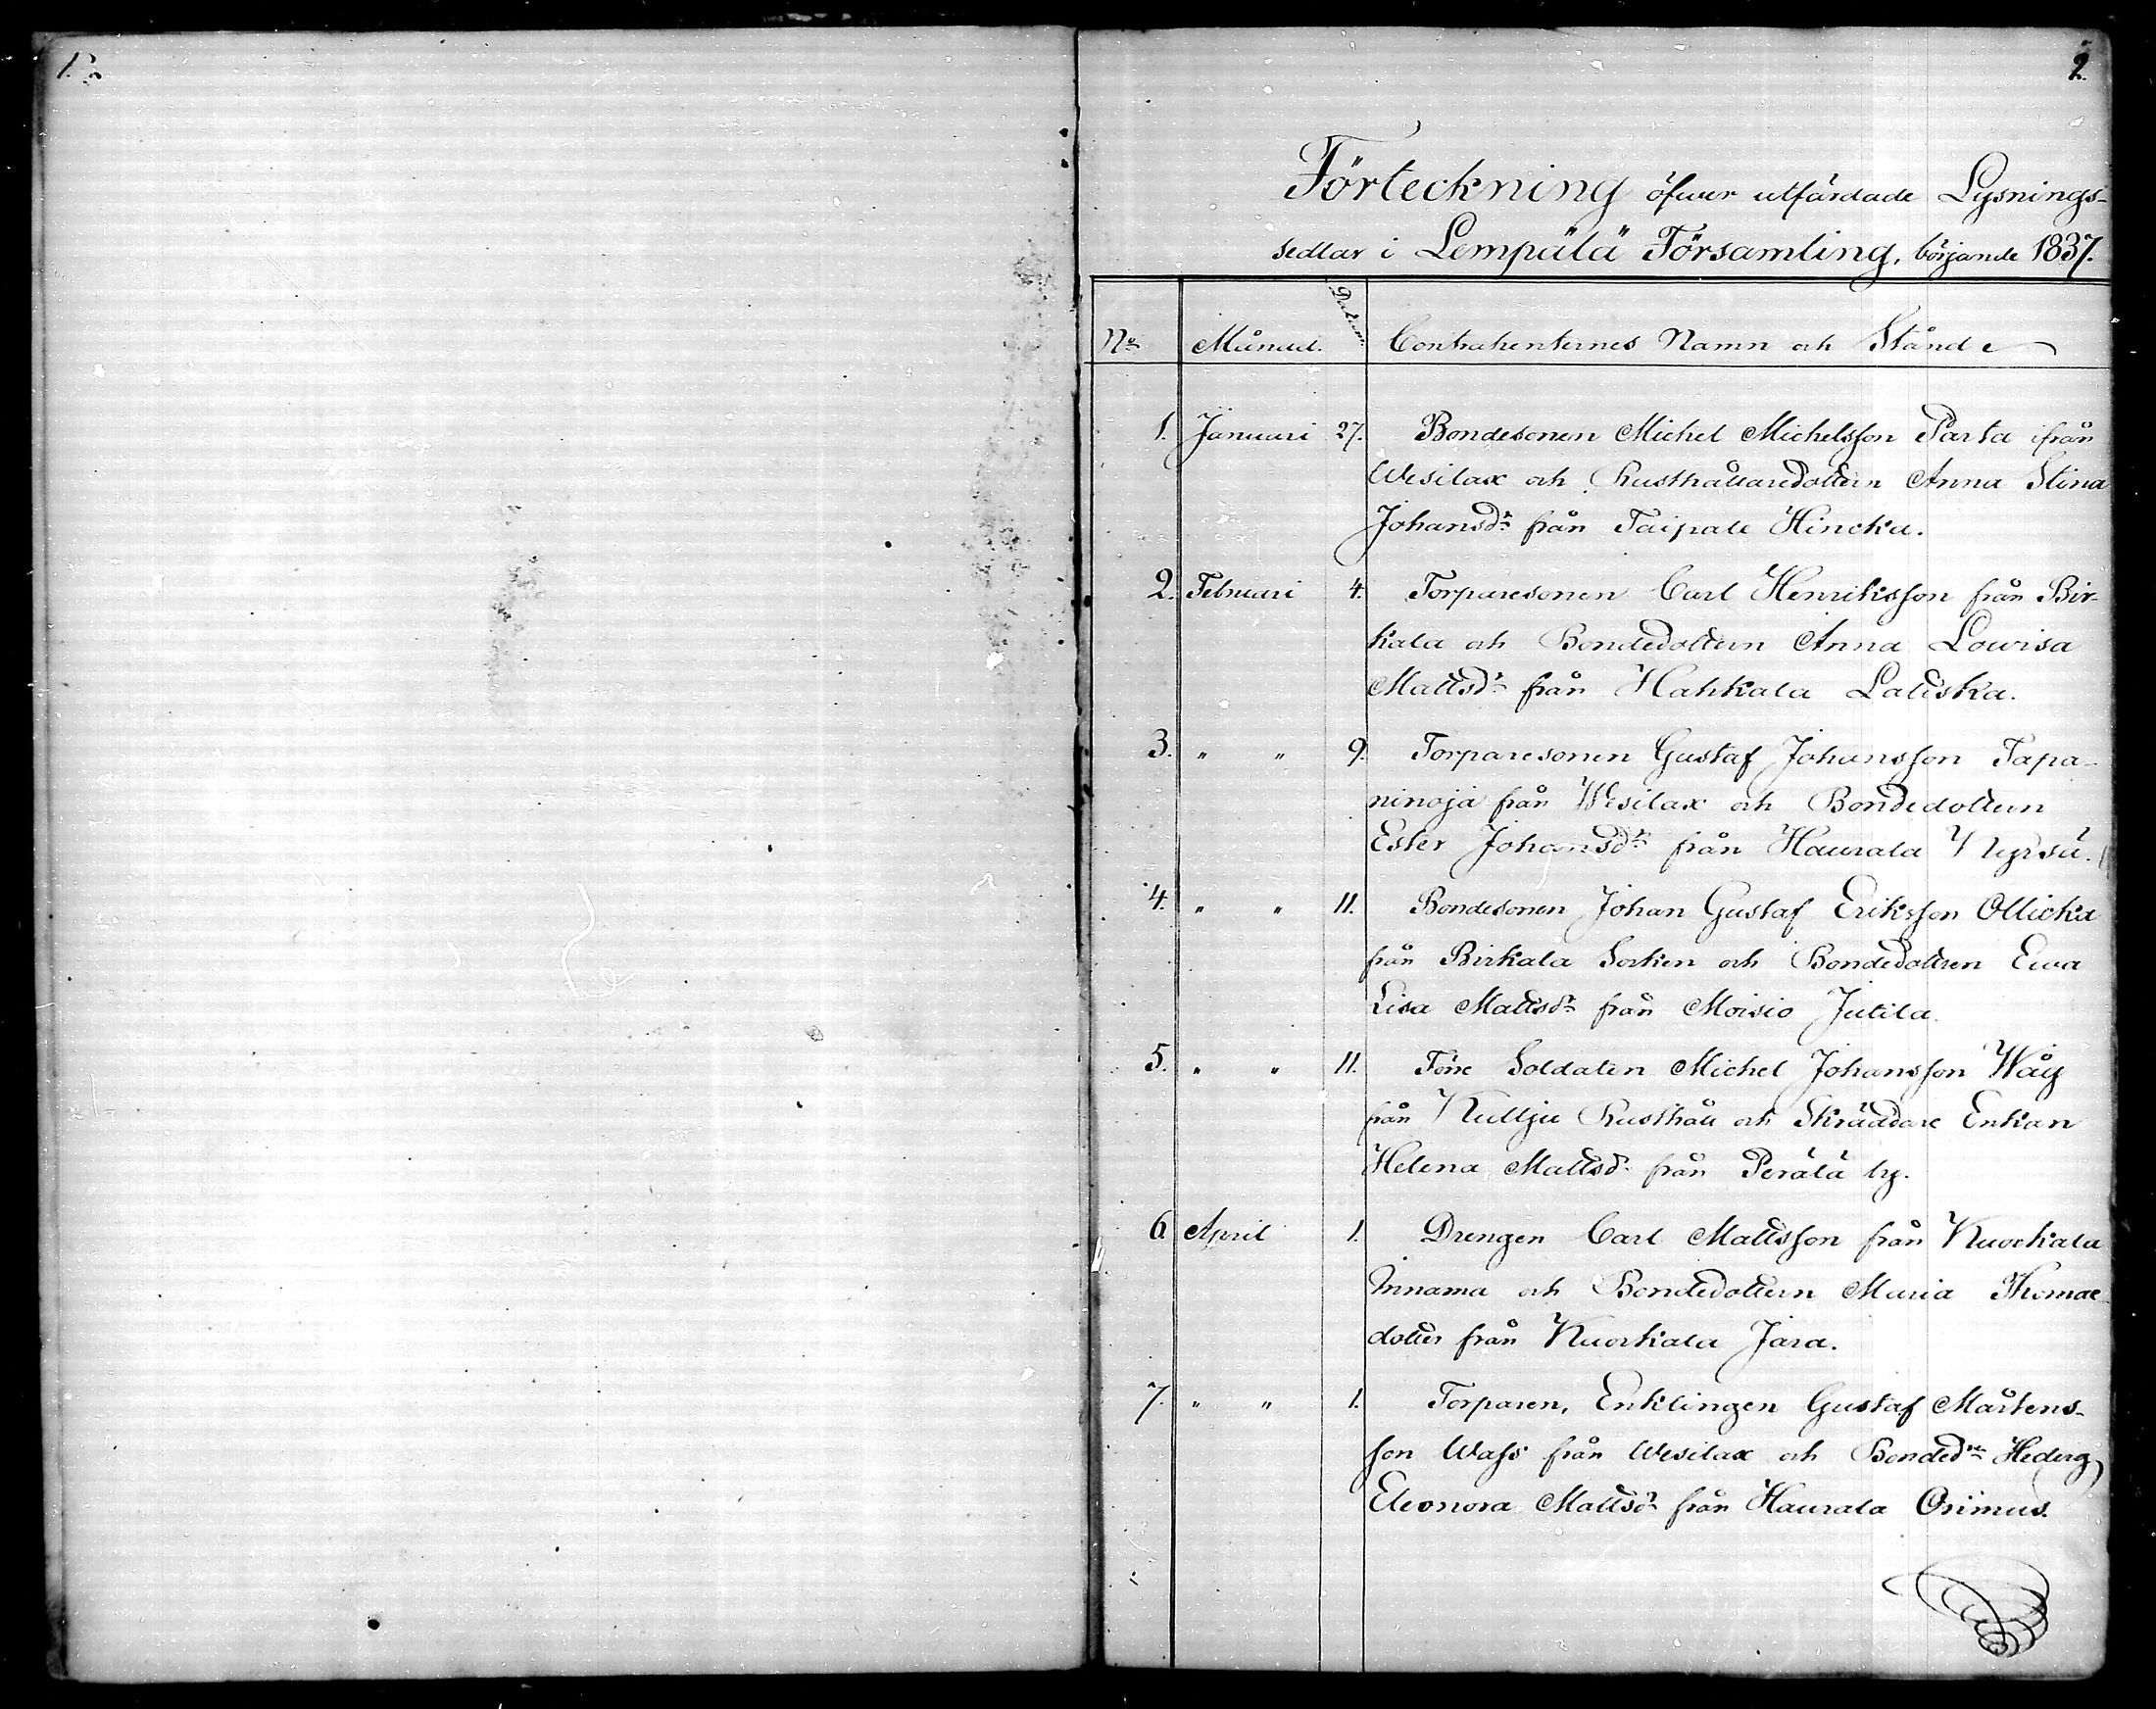 1.
2.
Förteckning öfwer utfärdade Lysnings-
sedlar i Lempälä Församling, börjande 1837.
No Månad. Datum. Contrahenternes Namn och Stånd
1. Januari 27. Bondesonen Michel Michelsson Parta ifrån
Wesilax och Rusthållaredottern Anna Stina
Johansdr från Taipale Hincka.
2. Februari 4. Torparesonen Carl Henriksson från Bir-
kala och Bondedottern Anna Lowisa
Mattsdr från Hahkala Latiska.
3. " " 9. Torparesonen Gustaf Johansson Tapa-
ninoja från Wesilax och Bondedottern
Ester Johansdr från Haurala
4. " " 11. Bondesonen Johan Gustaf Eriksson Ollicka
från Birkala Socken och Bondedottren Ewa
Lisa Mattsdr från Moisio Jutila.
5. " " 11. Förre Soldaten Michel Johansson Wåg
från Kulju Rusthåll och Skräddare Enkan
Helena Mattsdr från Perälä by.
6 April 1. Drengen Carl Mattsson från Kuockala
Innama och Bondedottern Maria Thomae
dotter från Kuockala Jära.
7. " " 1. Torparen, Enklingen Gustaf Mårtens-
son Wass från Wesilax och Bondedrn Hedvig
Eleonora Mattsdr från Haurala Orimus.